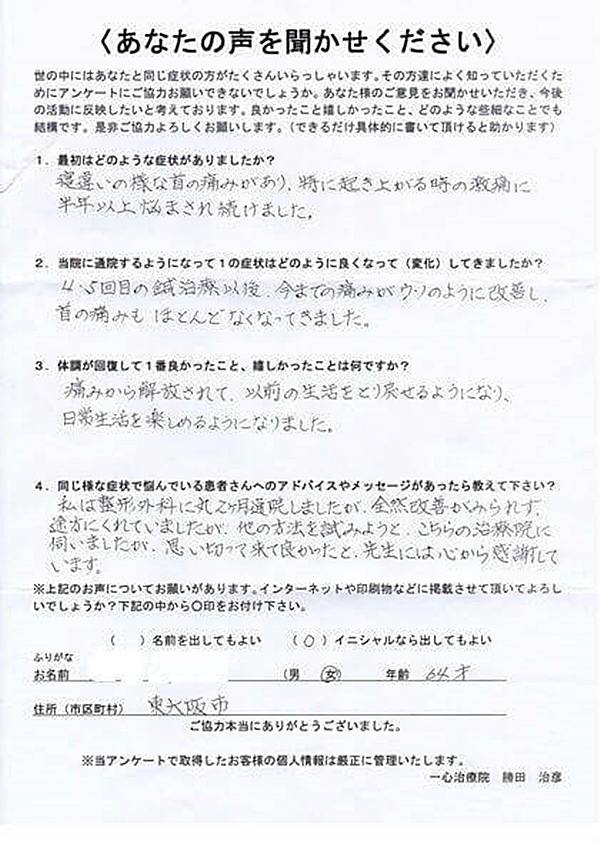 〈あなたの声を聞かせください〉
世の中にはあなたと同じ症状の方がたくさんいらっしゃいます。その方達によく知っていただくため
にアンケートにご協力お願いできないでしょうか。あなた様のご意見をお聞かせいただき、今後
の活動に反映したいと考えております。良かったこと嬉しかったこと、どのような些細なことでも
結構です。是非ご協力よろしくお願いします。（できるだけ具体的に書いて頂けると助かります）
1．最初はどのような症状がありましたか？
寝違いの様な首の痛みがあり、特に起き上がる時の激痛に
半年以上悩まされ続けました。
2．当院に通院するようになって1の症状はどのように良くなって（変化）してきましたか？
4・5回目の鍼治療以後、今までの痛みがウソのように改善し、
首の痛みもほとんどなくなってきました。
3．体調が回復して1番良かったこと、嬉しかったことは何ですか？
痛みから解放されて、以前の生活をとり戻せるようになり、
日常生活を楽しめるようになりました。
4．同じ様な症状で悩んでいる患者さんへのアドバイスやメッセージがあったら教えて下さい？
私は整形外科に丸2ヶ月通院しましたが、全然改善がみられず、
途方にくれていましたが、他の方法を試みようと、こちらの治療院に
伺いましたが、思い切って来て良かったと、先生には心から感謝して
います。
※上記のお声についてお願いがあります。インターネットや印刷物などに掲載させて頂いてよろし
いでしょうか？下記の中から〇印をお付け下さい。
（　）名前を出してもよい　（〇）イニシャルなら出してもよい
ふりがな
お名前　（男　女）　年齢　64才
住所（市区町村）　東大阪市
ご協力本当にありがとうございました。
※当アンケートで取得したお客様の個人情報は厳正に管理いたします。
一心治療院　勝田　治彦